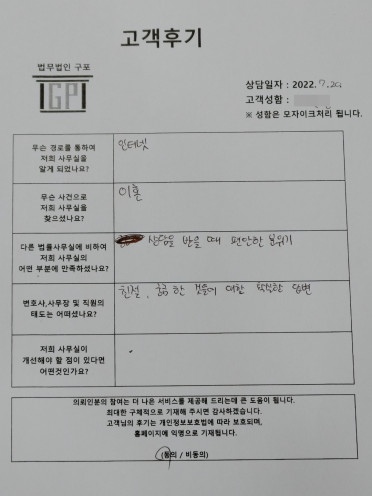 고객후기
법무법인 구포
GP
상담일자 : 2022. 7. 29
고객성함 :
※ 성함은 모자이크처리 됩니다.
무슨 경로를 통하여
저희 사무실을
알게 되었나요?
인터넷
무슨 사건으로
저희 사무실을
찾으셨나요?
이혼
다른 법률사무실에 비하여
저희 사무실의
어떤 부분에 만족하셨나요?
상담을 받을 때 편안한 분위기
변호사,사무장 및 직원의
태도는 어떠셨나요?
친절, 궁금한 것들에 대한 똑똑한 답변
저희 사무실이
개선해야 할 점이 있다면
어떤것인가요?
의뢰인분의 참여는 더 나은 서비스를 제공해 드리는데 큰 도움이 됩니다.
최대한 구체적으로 기재해 주시면 감사하겠습니다.
고객님의 후기는 개인정보보호법에 따라 보호되며,
홈페이지에 익명으로 기재됩니다.
(동의 / 비동의)